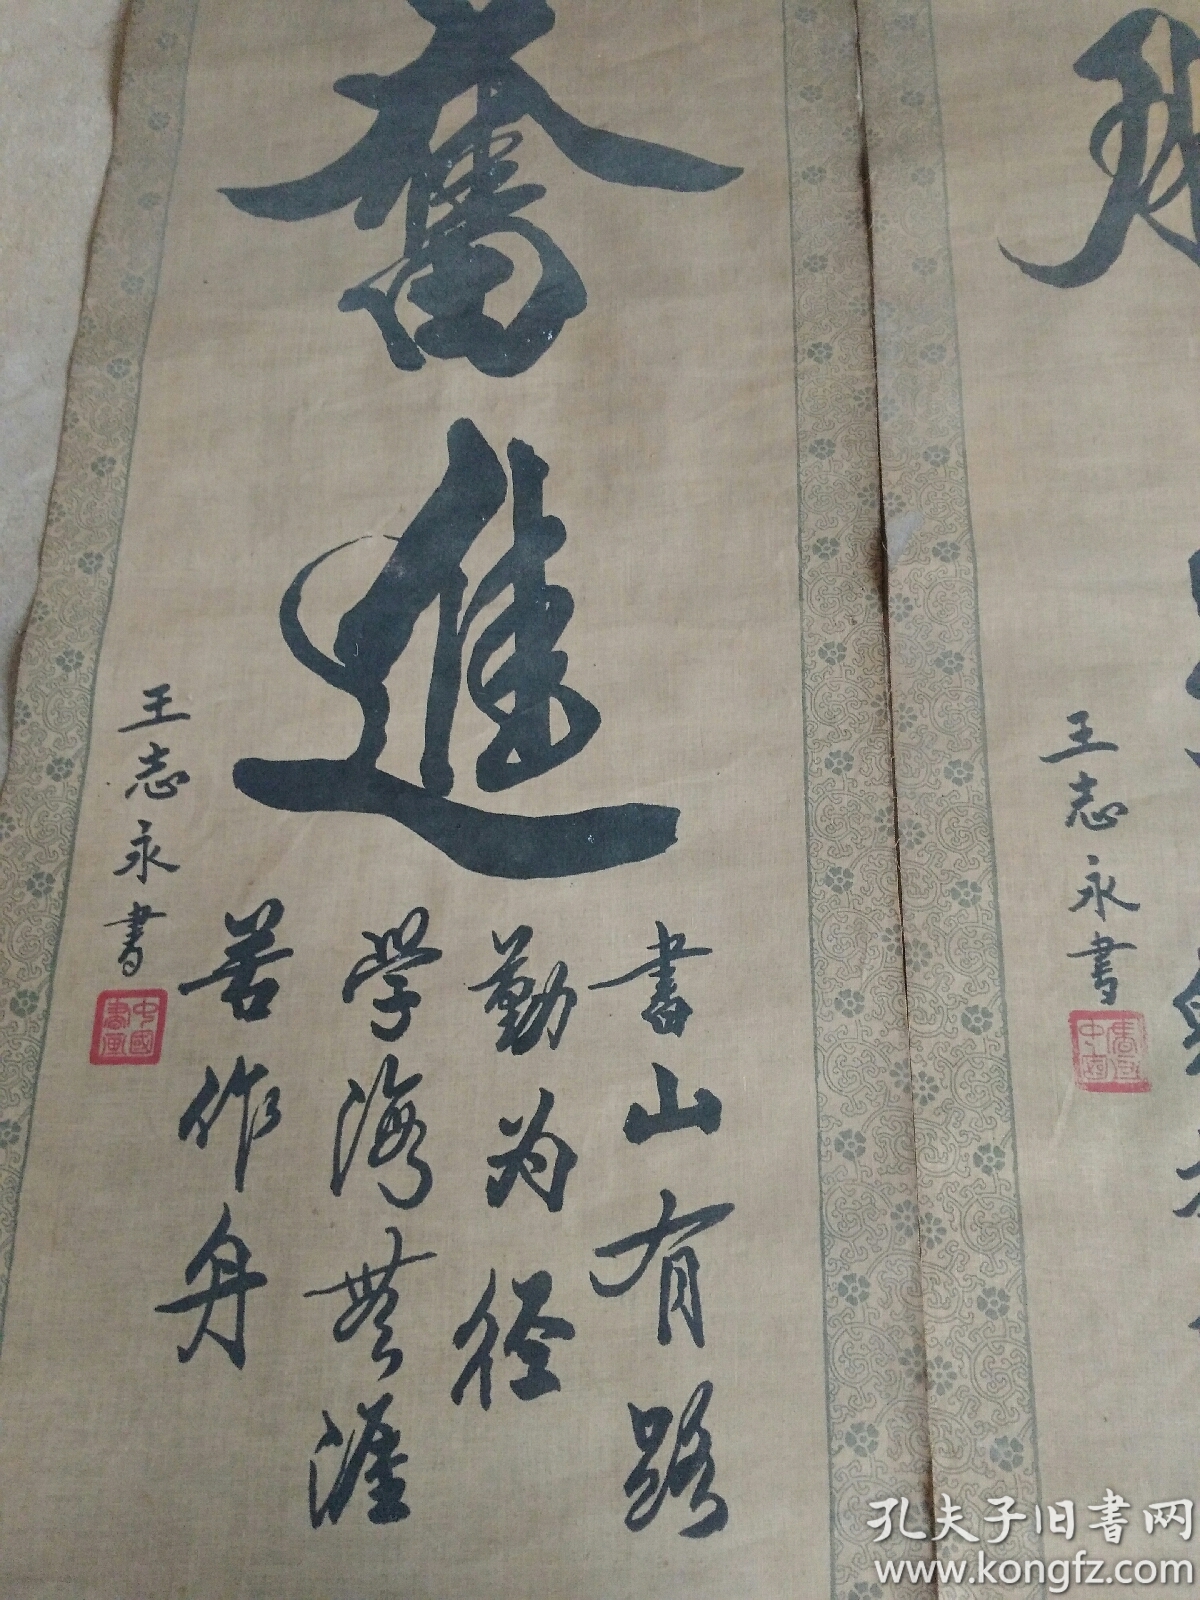 奮進
書山有路
勤为径
学海無涯
苦作舟
王志永書
中國書画
王志永書
孔夫子旧书网
www.kongfz.com